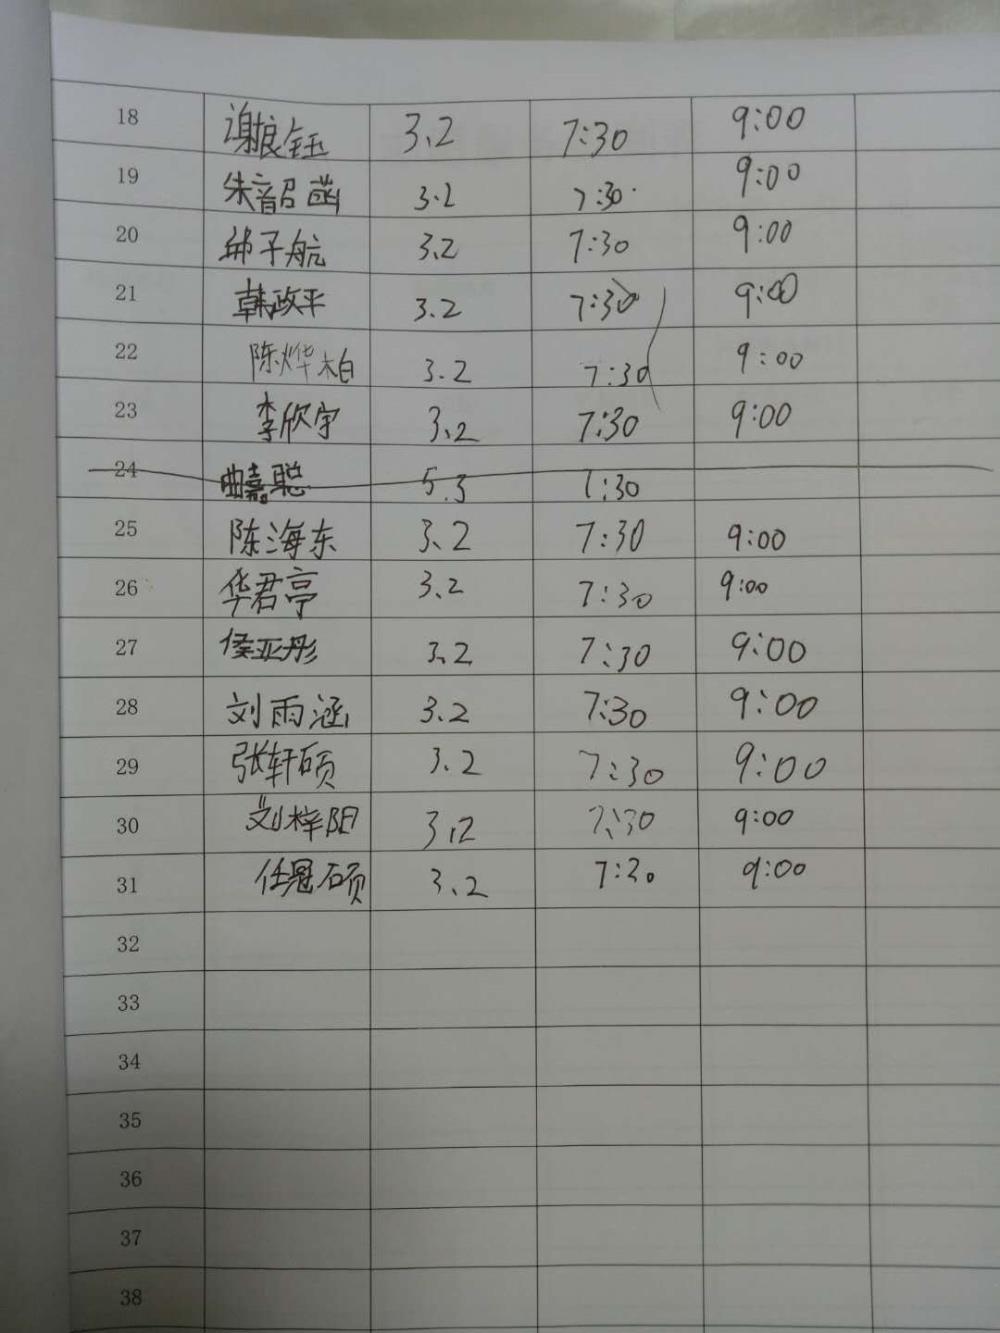 18 谢良钰 3.2 7:30 9:00
19 朱韶函 3.2 7:30 9:00
20 子航 3.2 7:30 9:00
21 韩政平 3.2 7:30 9:00
22 陈烨柏 3.2 7:30 9:00
23 李欣宇 3.2 7:30 9:00
24 曲嘉聪 5.3 7:30
25 陈海东 3.2 7:30 9:00
26 华君亭 3.2 7:30 9:00
27 侯亚彤 3.2 7:30 9:00
28 刘雨涵 3.2 7:30 9:00
29 张轩硕 3.2 7:30 9:00
30 刘梓阳 3.2 7:30 9:00
31 任冠硕 3.2 7:30 9:00
32
33
34
35
36
37
38